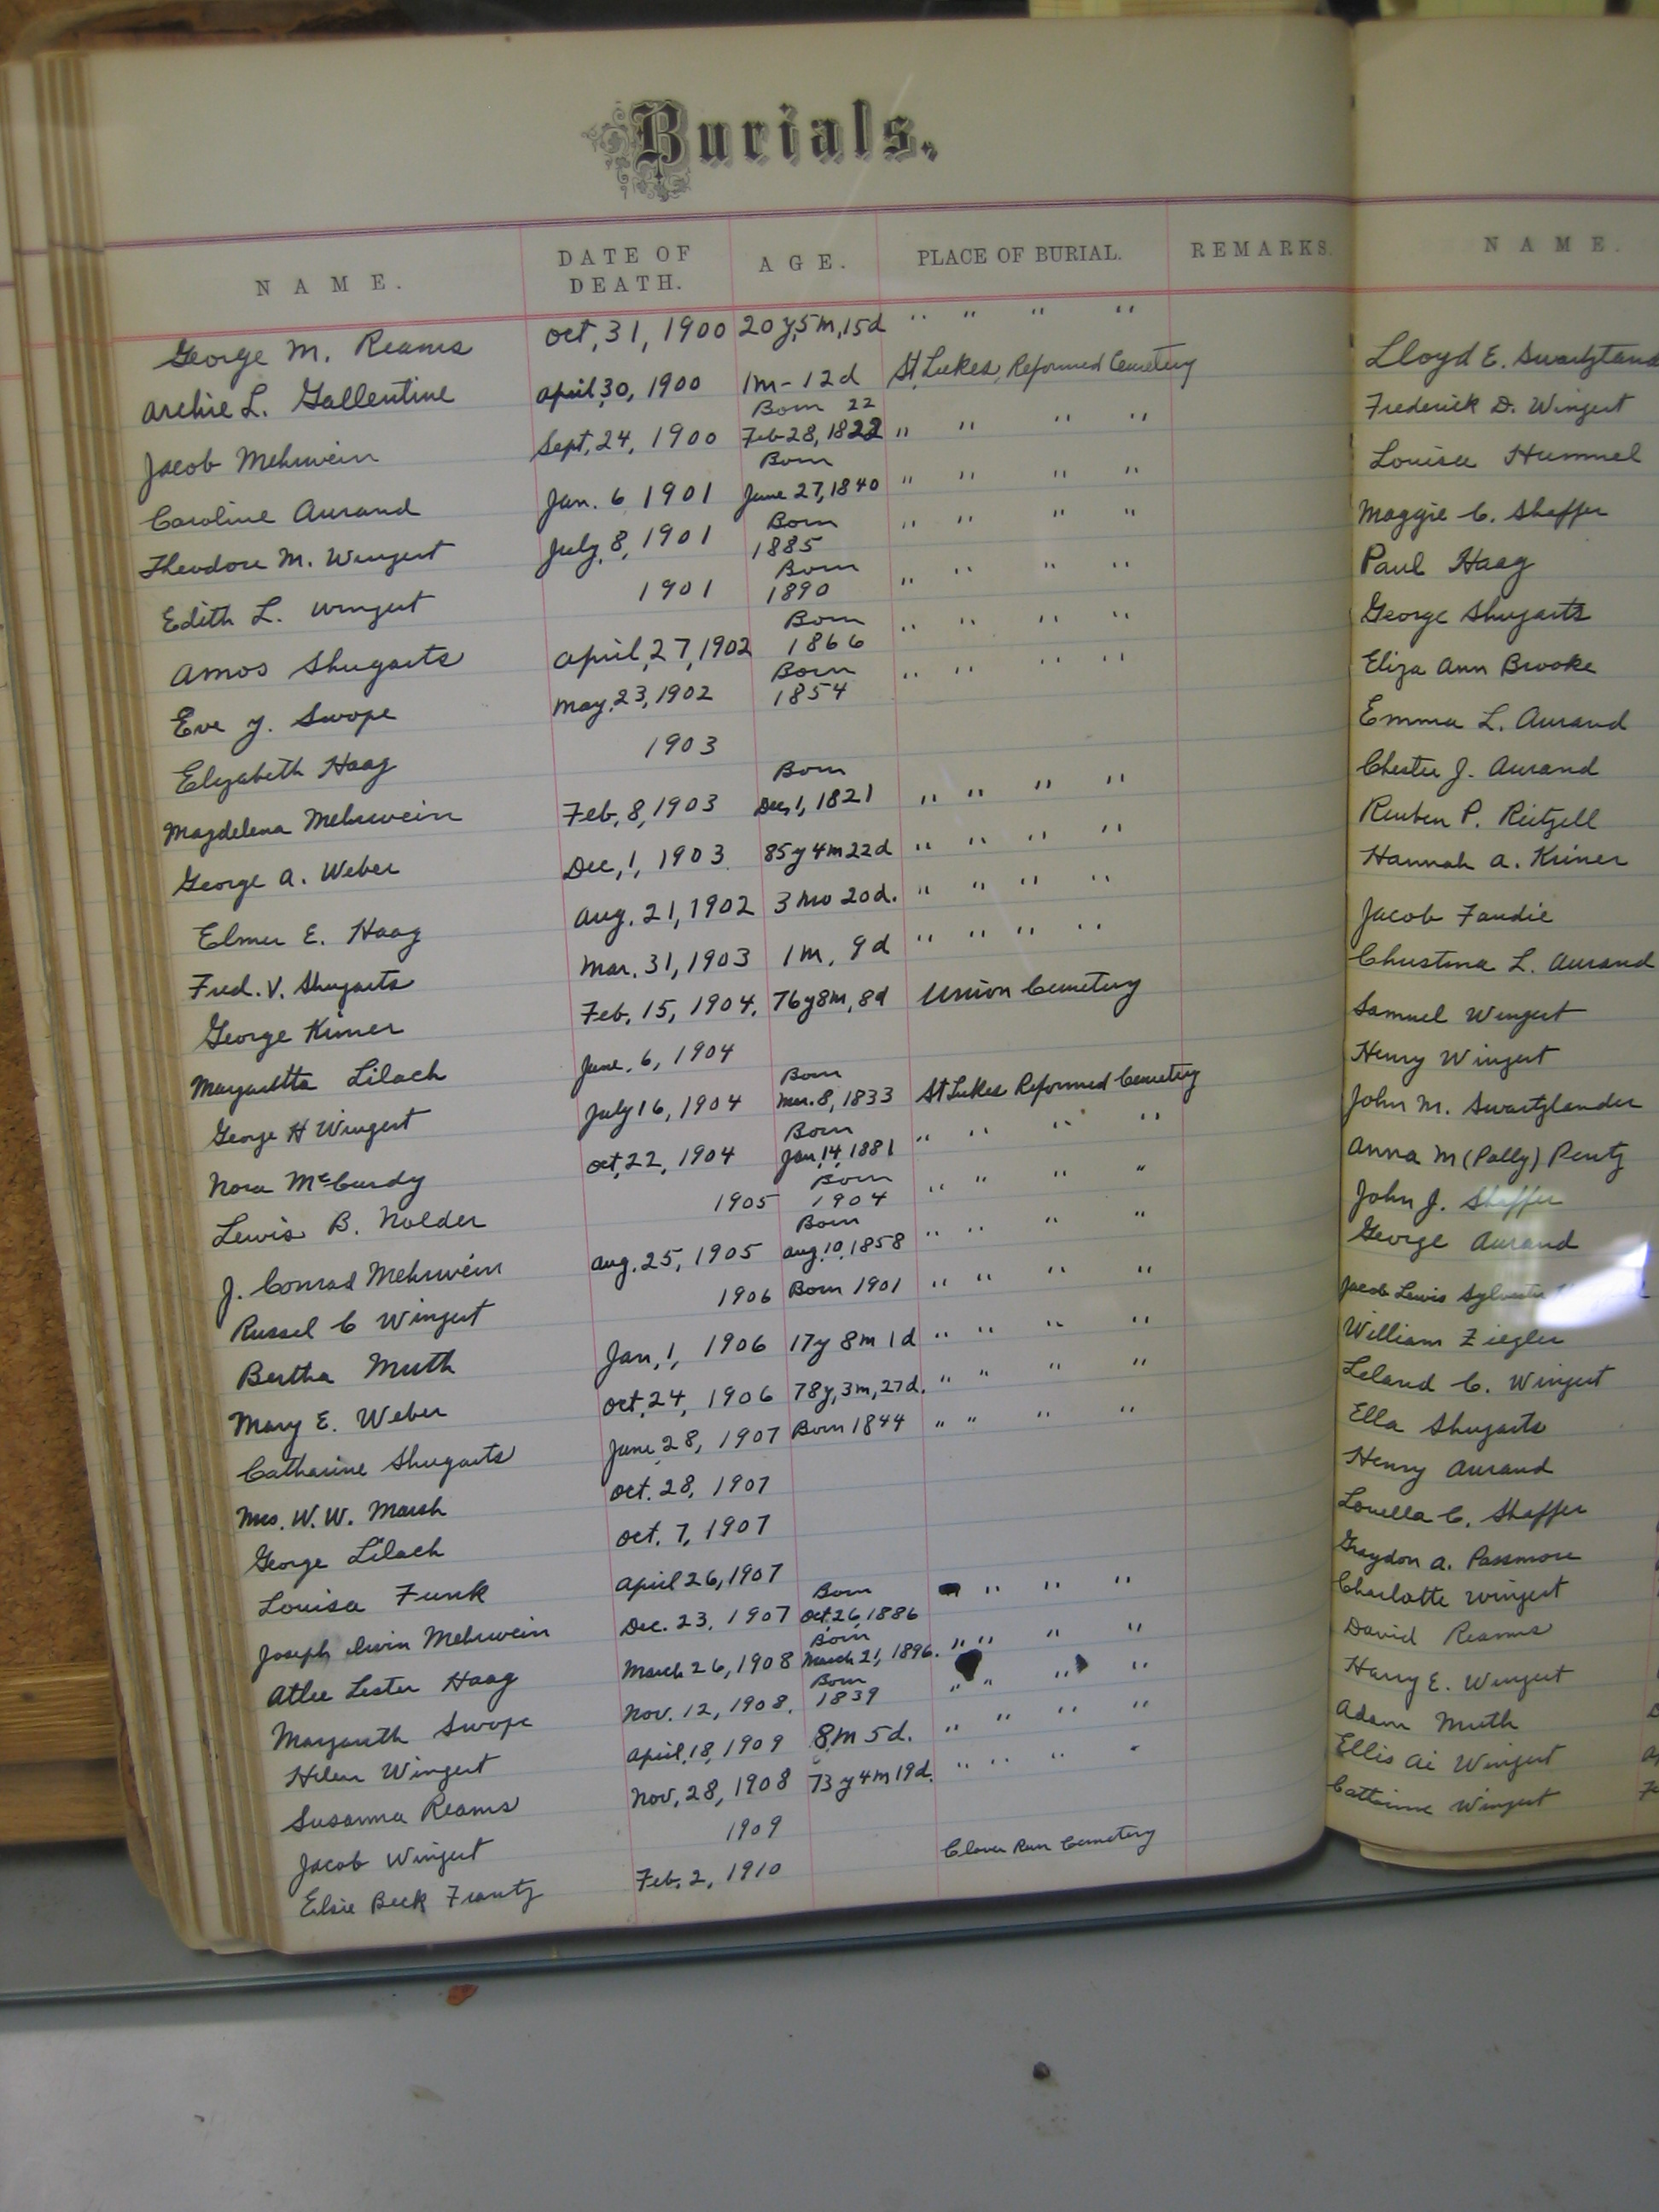 Burials.
NAME. DATE OF DEATH. AGE. PLACE OF BURIAL. REMARKS.
George M. Reams Oct, 31, 1900 20y,5m,15d " " " "
Archie L. Gallentine April 30, 1900 1m-12d St, Lukes, Reformed Cemetery
Jacob Mehrwein Sept, 24, 1900 Born 22 Feb 28, 1822 " " " "
Caroline Aurand Jan. 6 1901 Born June 27, 1840 " " " "
Theodore M. Wingert July, 8, 1901 Born 1885 " " " "
Edith L. Wingert 1901 Born 1890 " " " "
Amos Shugarts April, 27, 1902 Born 1866 " " " "
Eve Y. Swope May, 23, 1902 Born 1854 " " " "
Elizabeth Haag 1903
Magdelena Mehrwein Feb, 8, 1903 Born Dec, 1, 1821 " " " "
George A. Weber Dec, 1, 1903. 85y 4m 22d " " " "
Elmer E. Haag Aug. 21, 1902 3 mo 20d. " " " "
Fred. V. Shugarts Mar. 31, 1903 1m, 9d " " " "
George Kriner Feb, 15, 1904. 76y 8m, 8d Union Cemetery
Margaretta Lilach June, 6, 1904
George H Wingert July 16, 1904 Born Mar. 8, 1833 St Lukes Reformed Cemetery
Nora McCurdy Oct, 22, 1904 Born Jan, 14, 1881 " " " "
Lewis B. Nolder 1905 Born 1904 " " " "
J. Conrad Mehrwein Aug. 25, 1905 Born Aug, 10, 1858 " " " "
Russel C Wingert 1906 Born 1901 " " " "
Bertha Muth Jan, 1, 1906 17y 8m 1d " " " "
Mary E. Weber Oct, 24, 1906 78y, 3m, 27d. " " " "
Catharine Shugarts June 28, 1907 Born 1844 " " " "
Mrs. W. W. Marsh Oct. 28, 1907
George Lilach Oct. 7, 1907
Louisa Funk April 26, 1907
Joseph Irvin Mehrwein Dec. 23, 1907 Born Oct. 26, 1886 " " "
Atlee Lester Haag March 26, 1908 Born March 21, 1896. " " " "
Margareth Swope Nov. 12, 1908. Born 1839 " " " "
Helen Wingert April, 18, 1909 8m 5d. " " " "
Susanna Reams Nov, 28, 1908 73y 4m 19d. " " " "
Jacob Wingert 1909
Elsie Beck Frantz Feb, 2, 1910 Clover Run Cemetery
NAME.
Lloyd E.
Frederick D. Wingert
Louisa Hummel
Maggie C. Shaffer
Paul Haag
George Shugarts
Eliza Ann Brooke
Emma L. Aurand
Chester J. Aurand
Reuben P. Rietzell
Hannah A. Kriner
Jacob Fandie
Christina L. Aurand
Samuel Wingert
Henry Wingert
John M. Swartzlander
Anna M (Polly) Pentz
John J. Shaffer
George Aurand
Jacob Lewis Sylvester
William Ziegler
Leland C. Wingert
Ella Shugarts
Henry Aurand
Louella C. Shaffer
Graydon A. Passmore
Charlotte Wingert
David Reams
Harry E. Wingert
Adam Muth
Ellis Ai Wingert
Catharine Wingert